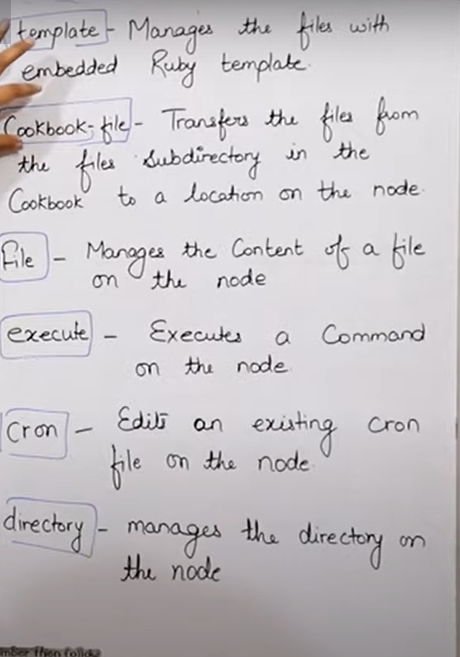 template - Manages the files with
embedded Ruby template.
Cookbook-file - Transfers the files from
the files subdirectory in the
Cookbook to a location on the node.
file - Manages the Content of a file
on the node
execute - Executes a Command
on the node.
Cron - Edits an existing Cron
file on the node.
directory - manages the directory on
the node